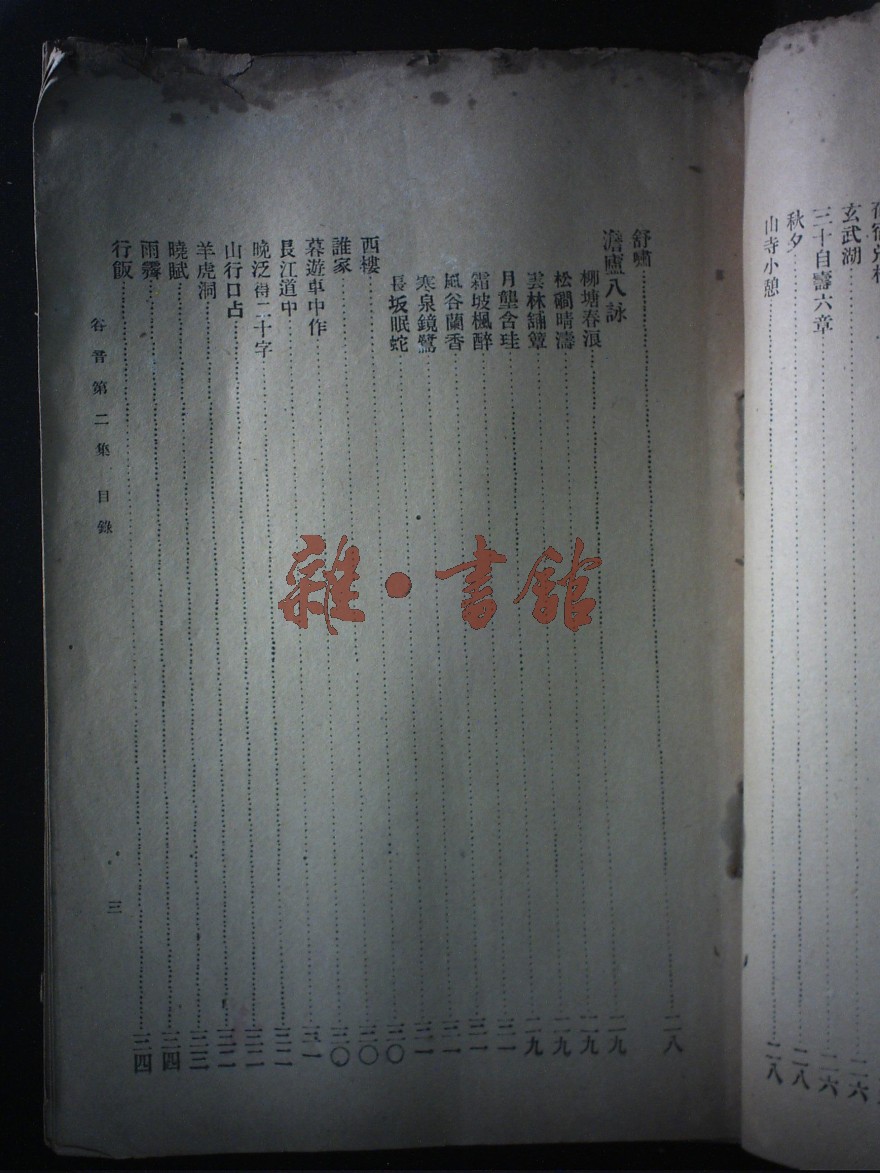 玄武湖……二六
三十自壽六章……二六
秋夕……二八
山寺小憩……二八
舒嘯……二八
澹廬八詠……二九
柳塘春浪……二九
松磵晴濤……二九
雲林鋪簟……二九
月壟含珪……三一
霜坡楓醉……三一
風谷蘭香……三一
寒泉鏡鷺……三一
長坂眠蛇……三〇
西樓……三〇
誰家……三〇
暮遊車中作……三一
艮江道中……三二
晚泛得二十字……三二
山行口占……三二
羊虎洞……三三
曉賦……三四
雨霽……三四
行飯……三四
谷音第二集 目錄
三
雜·書館